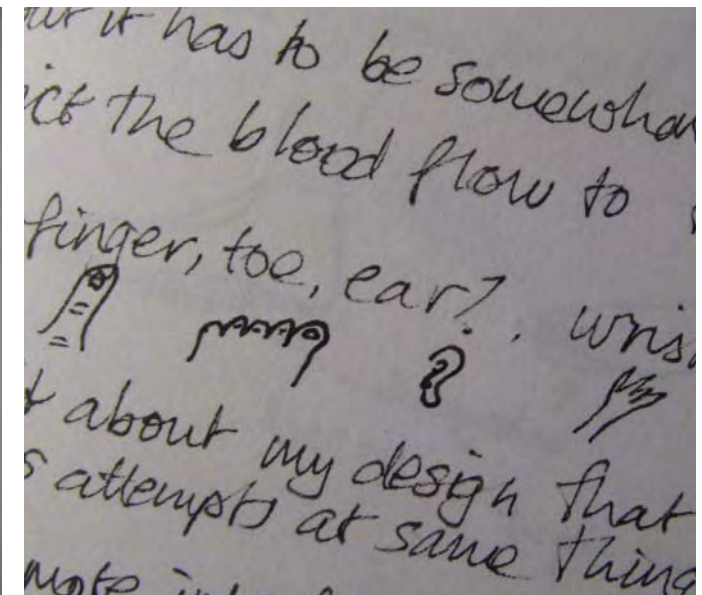 but it has to be somewhat
ict the blood flow to
finger, toe, ear?. wris
t about my design that
s attempts at same thing
more